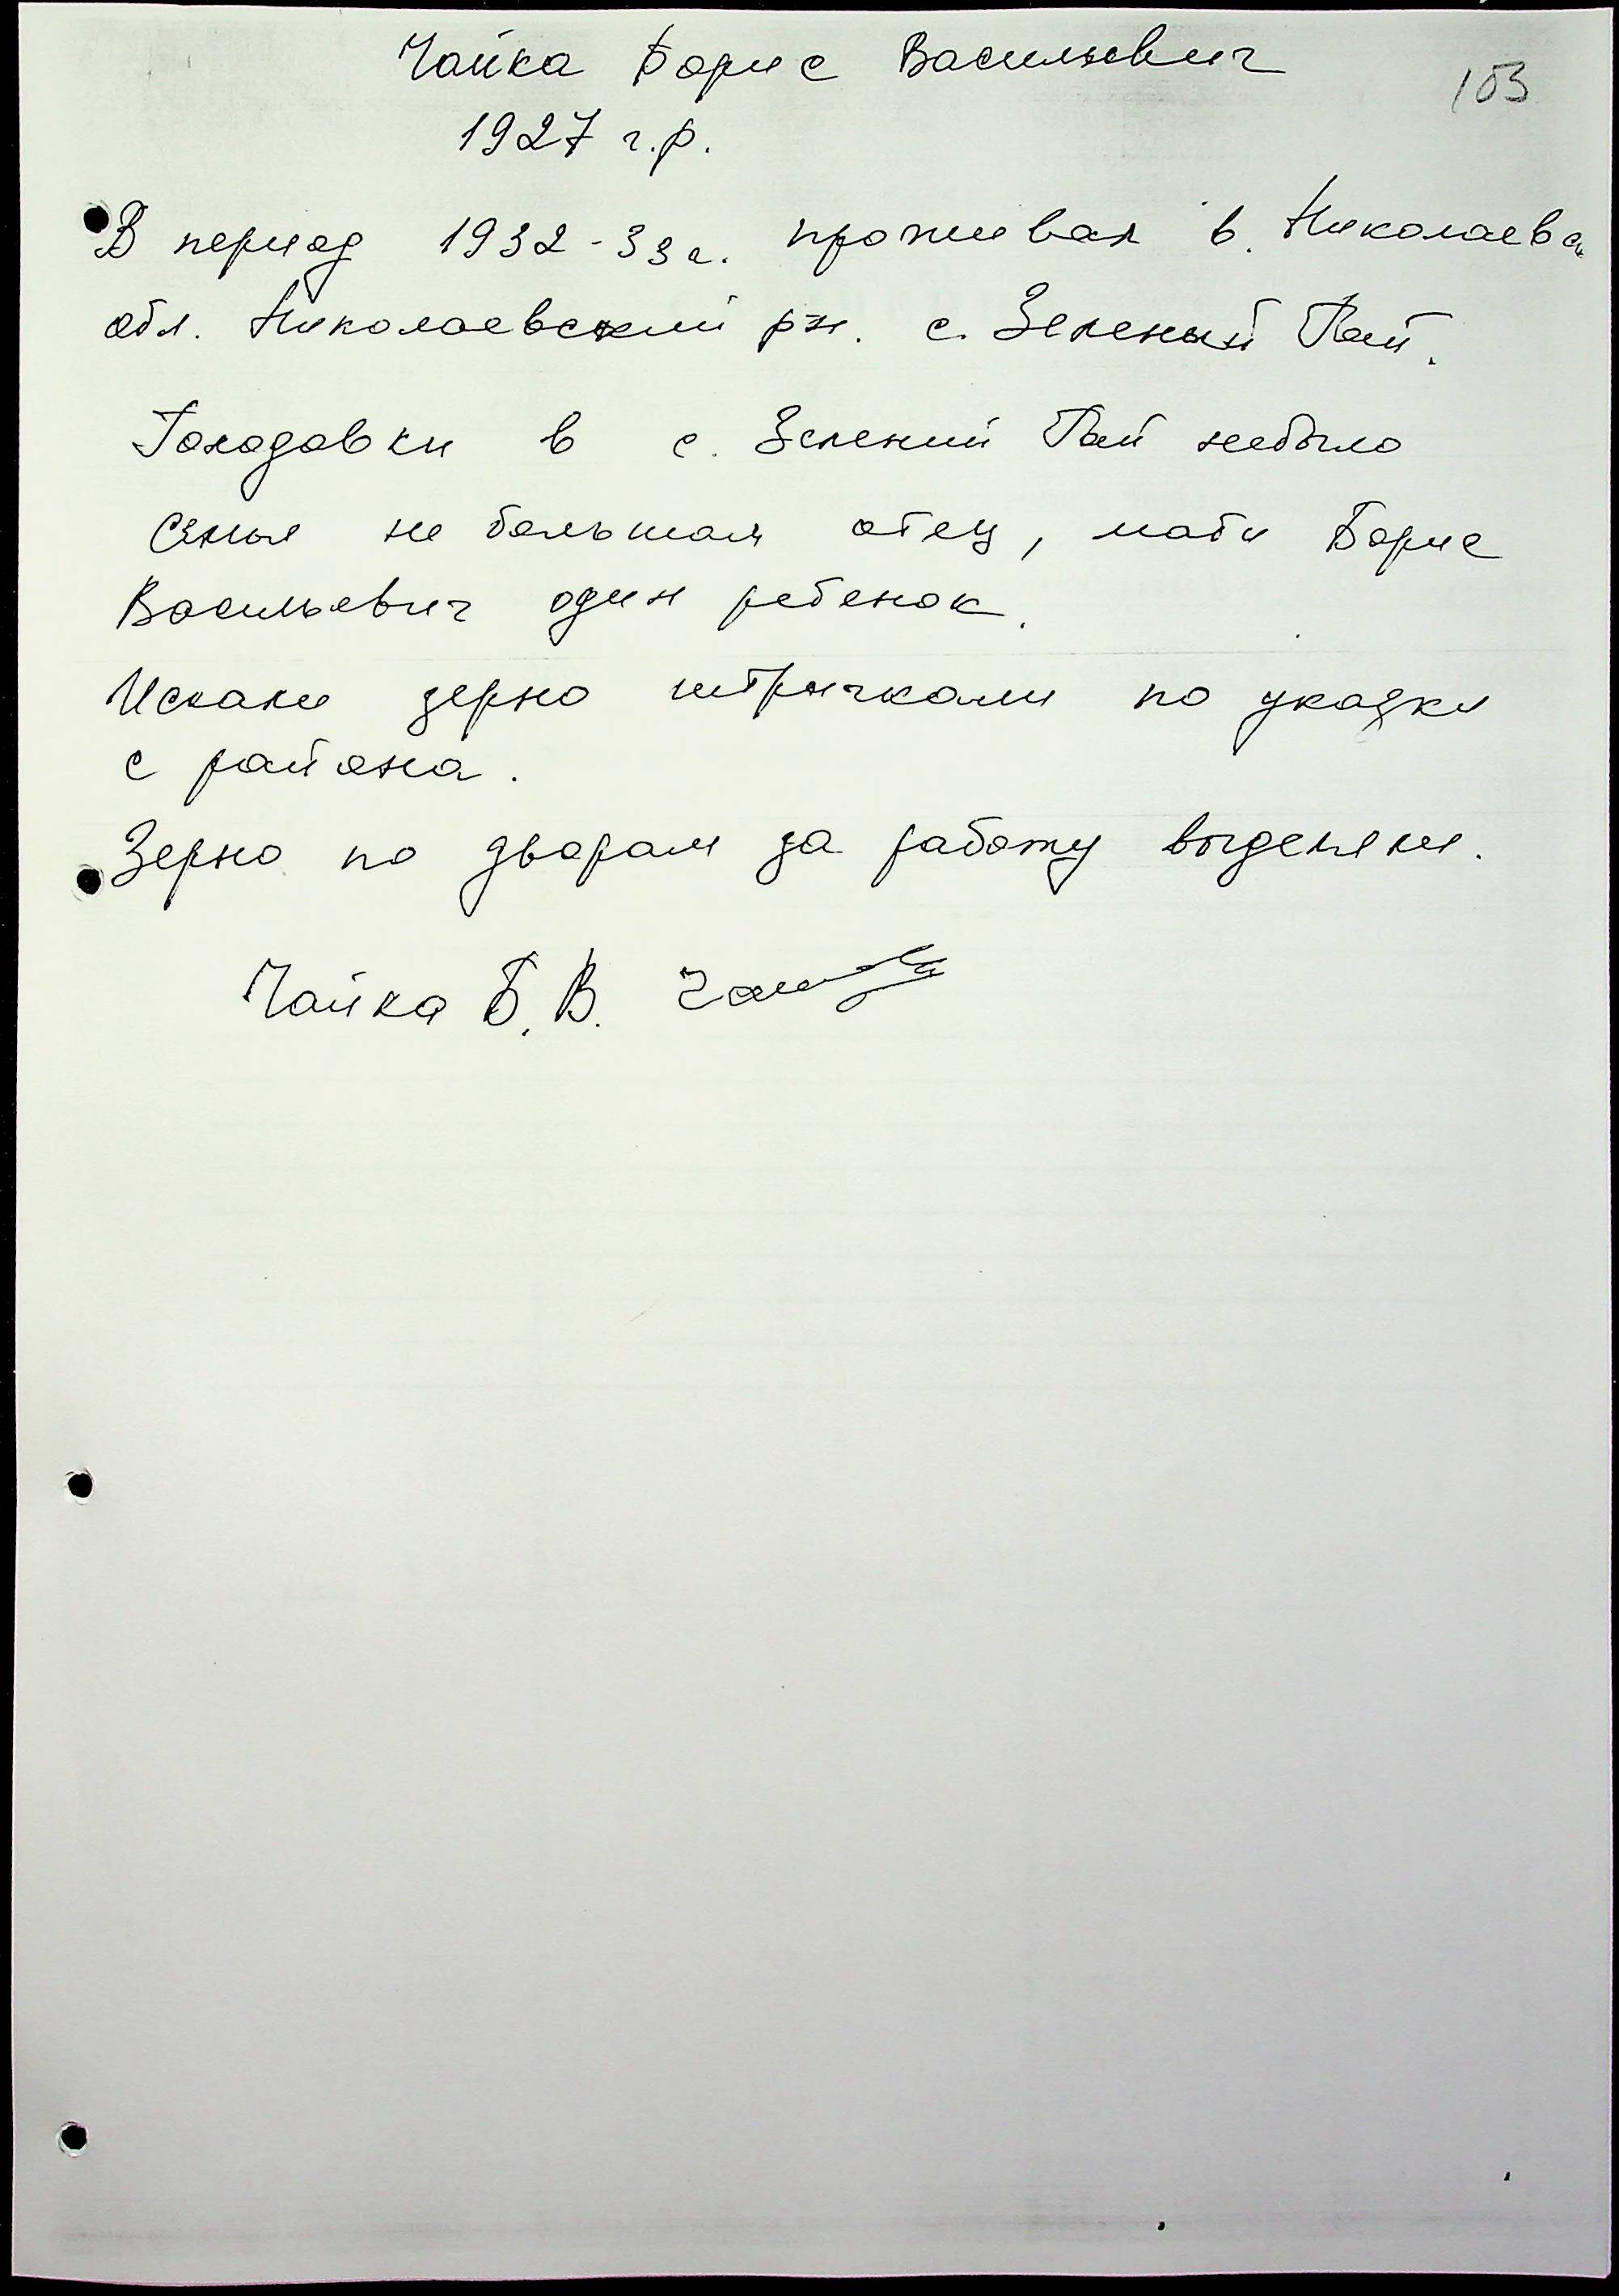 Чайка Борис Васильевич
103
1927 г.р.
В период 1932-33г. проживал в. Николаевс
обл. Николаевский р-н. с. Зеленый Гай.
Голодовки в с. Зелений Гай небыло
Семья не большая отец, мати Борис
Васильевич один ребенок.
Искали зерно штричками по указки
с района.
Зерно по дворам за работу выделяли.
Чайка Б.В.